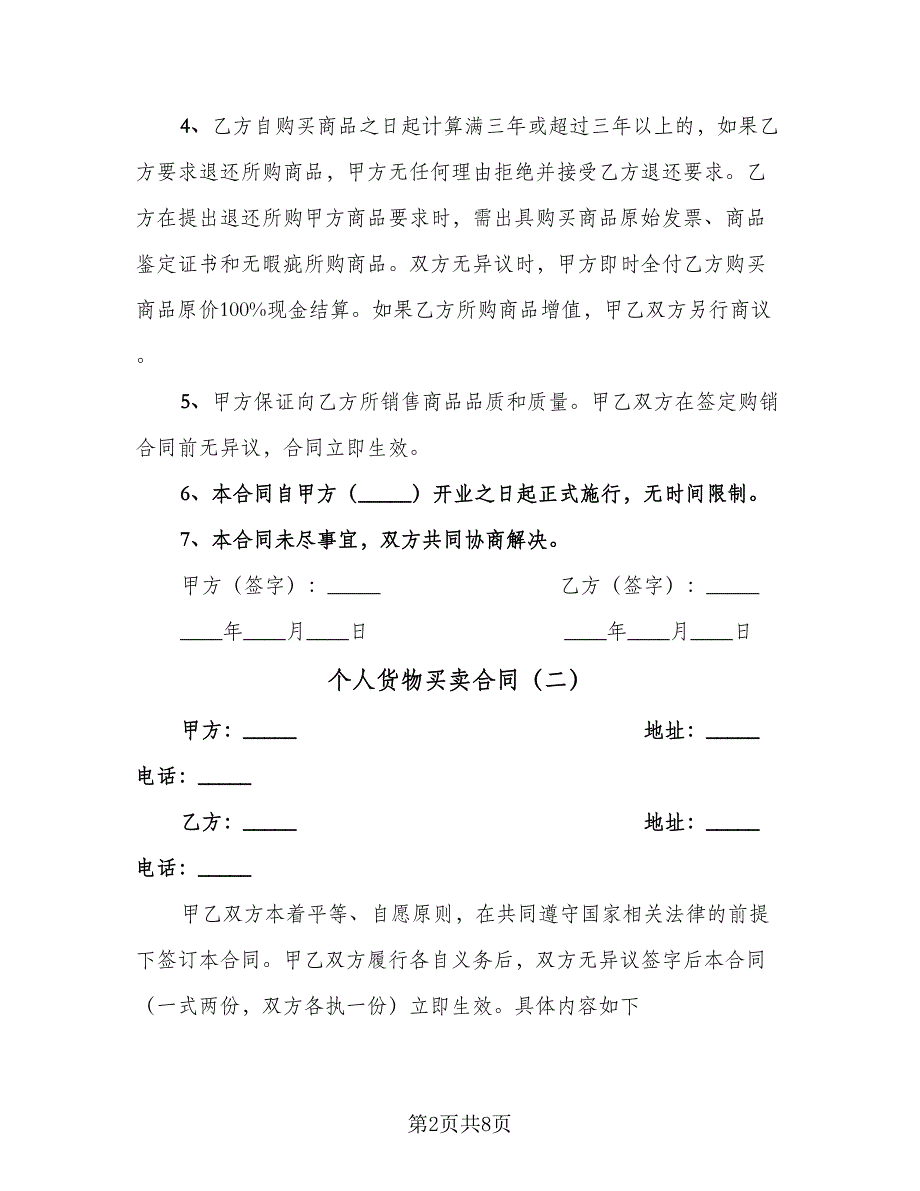 4、乙方自购买商品之日起计算满三年或超过三年以上的，如果乙
方要求退还所购商品，甲方无任何理由拒绝并接受乙方退还要求。乙
方在提出退还所购甲方商品要求时，需出具购买商品原始发票、商品
鉴定证书和无暇疵所购商品。双方无异议时，甲方即时全付乙方购买
商品原价100%现金结算。如果乙方所购商品增值，甲乙双方另行商议
。
5、甲方保证向乙方所销售商品品质和质量。甲乙双方在签定购销
合同前无异议，合同立即生效。
6、本合同自甲方（_____）开业之日起正式施行，无时间限制。
7、本合同未尽事宜，双方共同协商解决。
甲方（签字）：_____ 乙方（签字）：_____
____年____月____日 ____年____月____日
个人货物买卖合同（二）
甲方：_____ 地址：_____
电话：_____
乙方：_____ 地址：_____
电话：_____
甲乙双方本着平等、自愿原则，在共同遵守国家相关法律的前提
下签订本合同。甲乙双方履行各自义务后，双方无异议签字后本合同
（一式两份，双方各执一份）立即生效。具体内容如下
第2页共8页